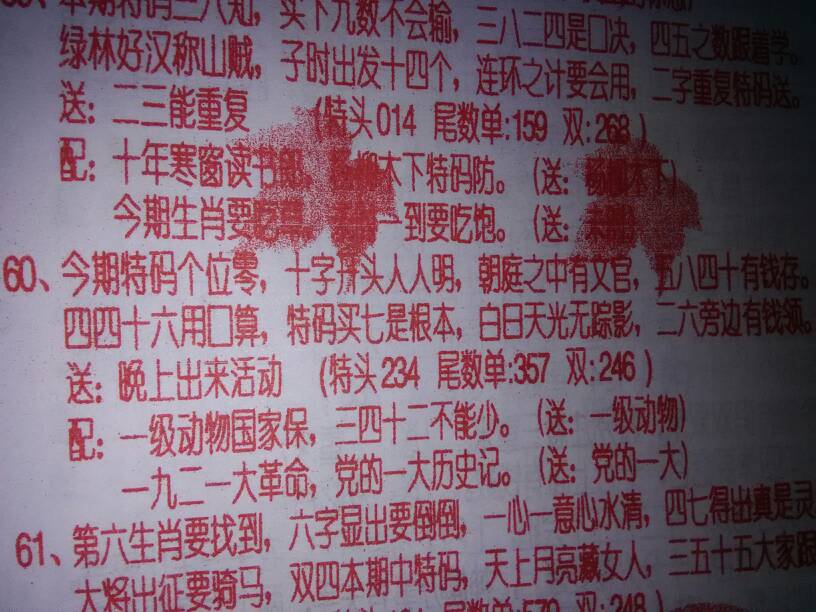 本期特码三八知，买下九数不会输，三八二四是口决，四五之数跟着学。
绿林好汉称山贼，子时出发十四个，连环之计要会用，二字重复特码送。
送：二三能重复 （特头014 尾数单:159 双:268）
配：十年寒窗读书 木下特码防。（送：木下）
今期生肖要 一到要吃饱。（送：
60、今期特码个位零，十字开头人人明，朝庭之中有文官，五八四十有钱存。
四四十六用口算，特码买七是根本，白日天光无踪影，二六旁边有钱领。
送：晚上出来活动 （特头234 尾数单:357 双:246）
配：一级动物国家保，三四十二不能少。（送：一级动物）
一九二一大革命，党的一大历史记。（送：党的一大）
61、第六生肖要找到，六字显出要倒倒，一心一意心水清，四七得出真是灵
大将出征要骑马，双四本期中特码，天上月亮藏女人，三五十五大家跟
579 双:248）